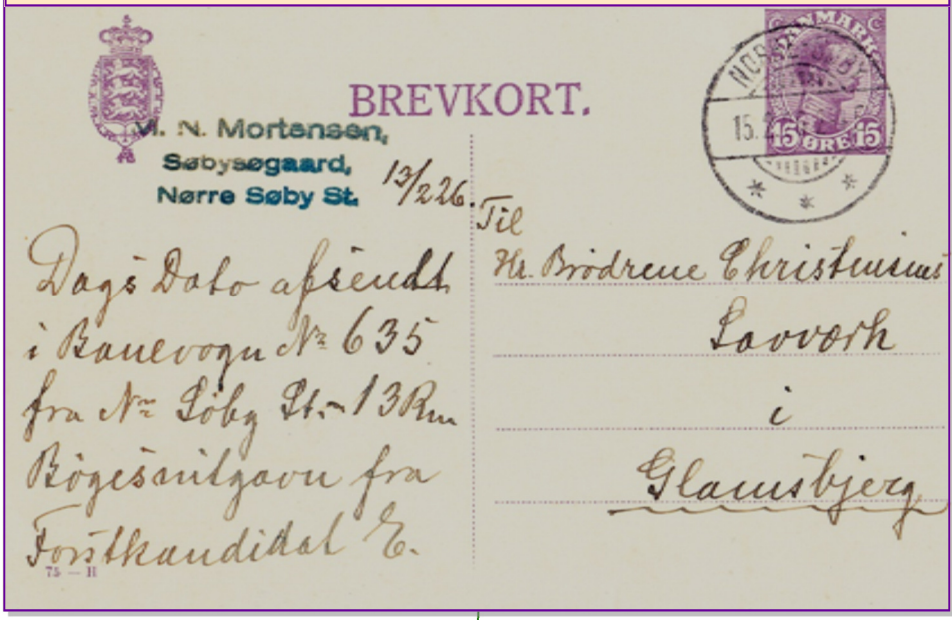 BREVKORT.
DANMARK
15 ØRE 15
15.2
M. N. Mortensen,
Søbysøgaard,
Nørre Søby St.
13/2 26.
Dags Dato afsendt
i Banevogn No 635
fra Nr Söby St. 13 Rm
Bögesnitgavn fra
Forstkandidat E.
75 — H
Til
Hr. Brödrene Christensens
Savværk
i
Glamsbjerg